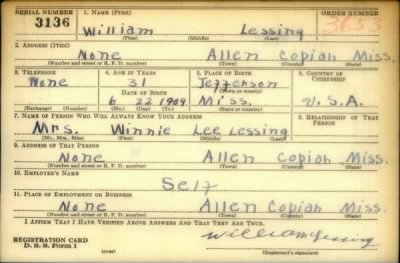 SERIAL NUMBER 1. NAME (Print) ORDER NUMBER
3136 William Lessing 3653
(First) (Middle) (Last)
2. ADDRESS (Print)
None Allen Copiah Miss.
(Number and street or R. F. D. number) (Town) (County) (State)
3. TELEPHONE 4. AGE IN YEARS 5. PLACE OF BIRTH 6. COUNTRY OF CITIZENSHIP
None 31 Jefferson
DATE OF BIRTH (Town or county)
6 22 1909 Miss. U.S.A.
(Exchange) (Number) (Mo.) (Day) (Yr.) (State or country)
7. NAME OF PERSON WHO WILL ALWAYS KNOW YOUR ADDRESS 8. RELATIONSHIP OF THAT PERSON
Mrs. Winnie Lee Lessing
(Mr., Mrs., Miss) (First) (Middle) (Last)
9. ADDRESS OF THAT PERSON
None Allen Copiah Miss.
(Number and street or R. F. D. number) (Town) (County) (State)
10. EMPLOYER'S NAME
Self
11. PLACE OF EMPLOYMENT OR BUSINESS
None Allen Copiah Miss.
(Number and street or R. F. D. number) (Town) (County) (State)
I AFFIRM THAT I HAVE VERIFIED ABOVE ANSWERS AND THAT THEY ARE TRUE.
REGISTRATION CARD
D. S. S. Form 1 (over) William Lessing
(Registrant's signature)